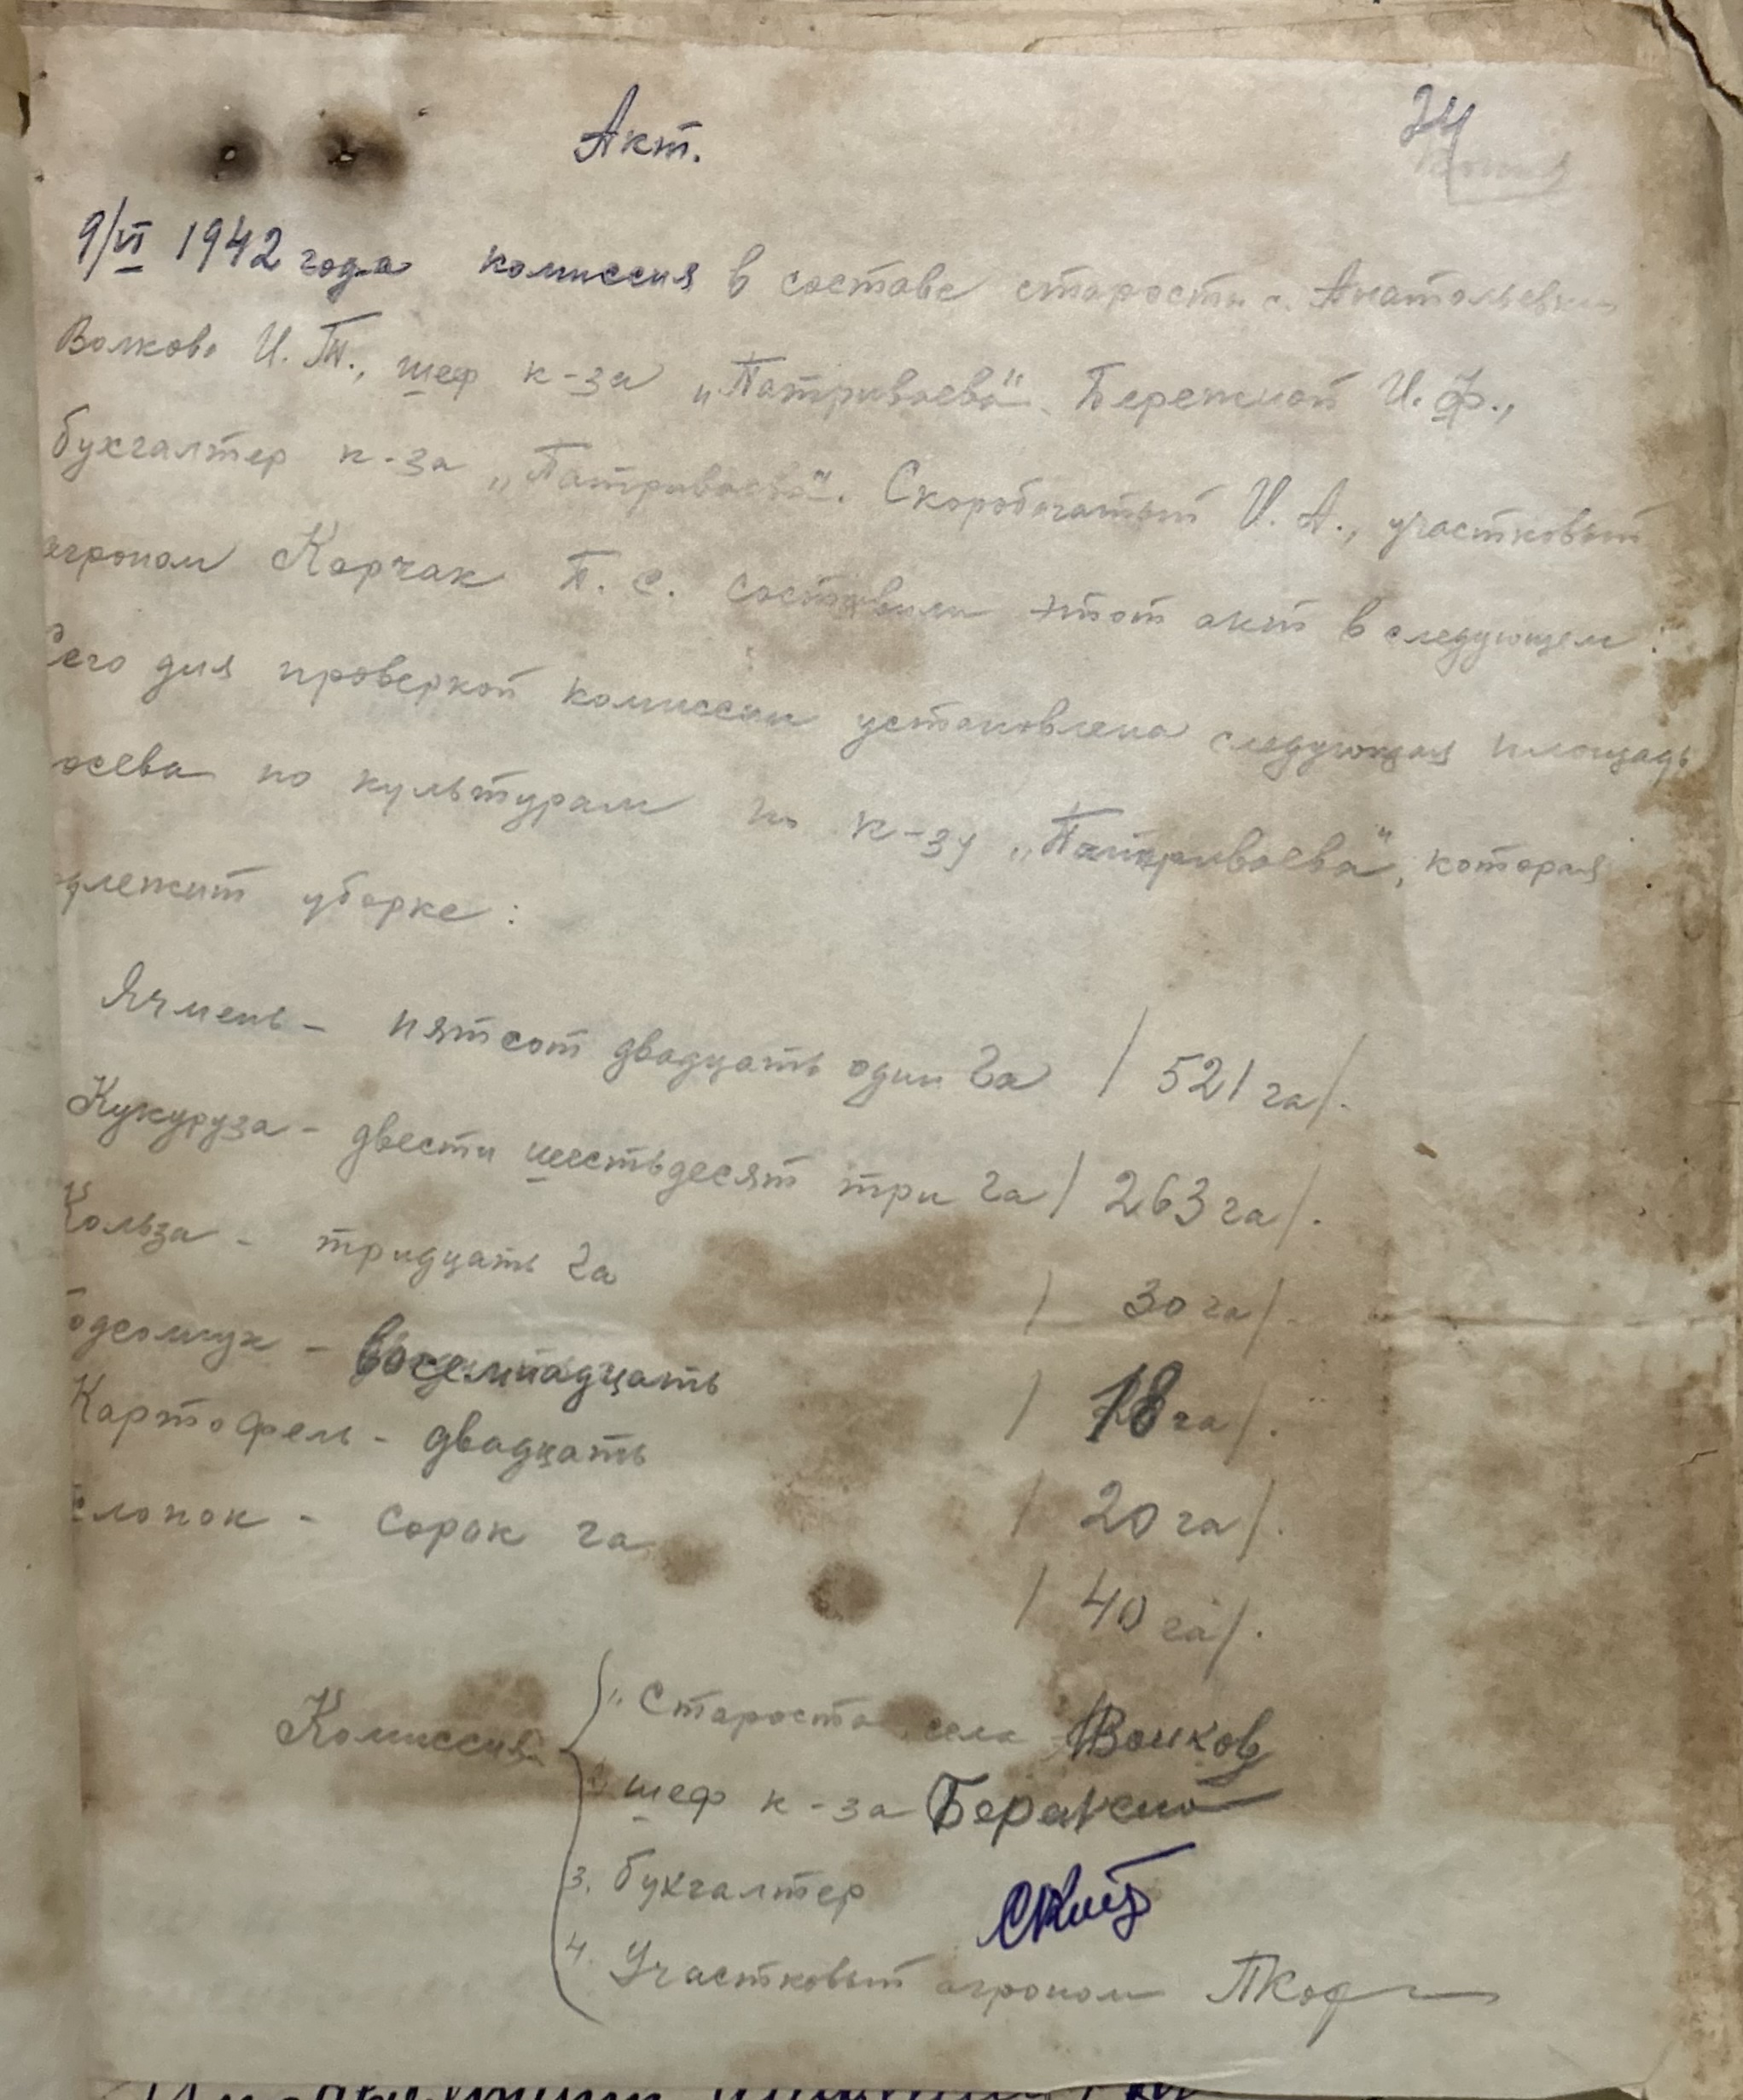 Акт.
24
9/VI 1942 года комиссия в составе старосты с. Анатольевки
Волкова И. Т., шеф к-за „Патриваева“ Бережной И. Ф.,
бухгалтер к-за „Патриваева“. Скоробогатый И. А., участковый
агроном Корчак П. С. составили этот акт в следующем:
Сего дня проверкой комиссии установлена следующая площадь
осева по культурам по к-зу „Патриваева“, которая
длежит уборке:
Ячмень - пятсот двадцать один га / 521 га/.
Кукуруза - двести шестьдесят три га / 263 га/.
Кользa - тридцать га / 30 га/.
одсолнух - восемнадцать / 18 га/.
Картофель - двадцать / 20 га/.
хлопок - сорок га / 40 га/.
Комиссия
1. Староста села Волков
2. шеф к-за Бережной
3. бухгалтер
4. Участковый агроном ПКор